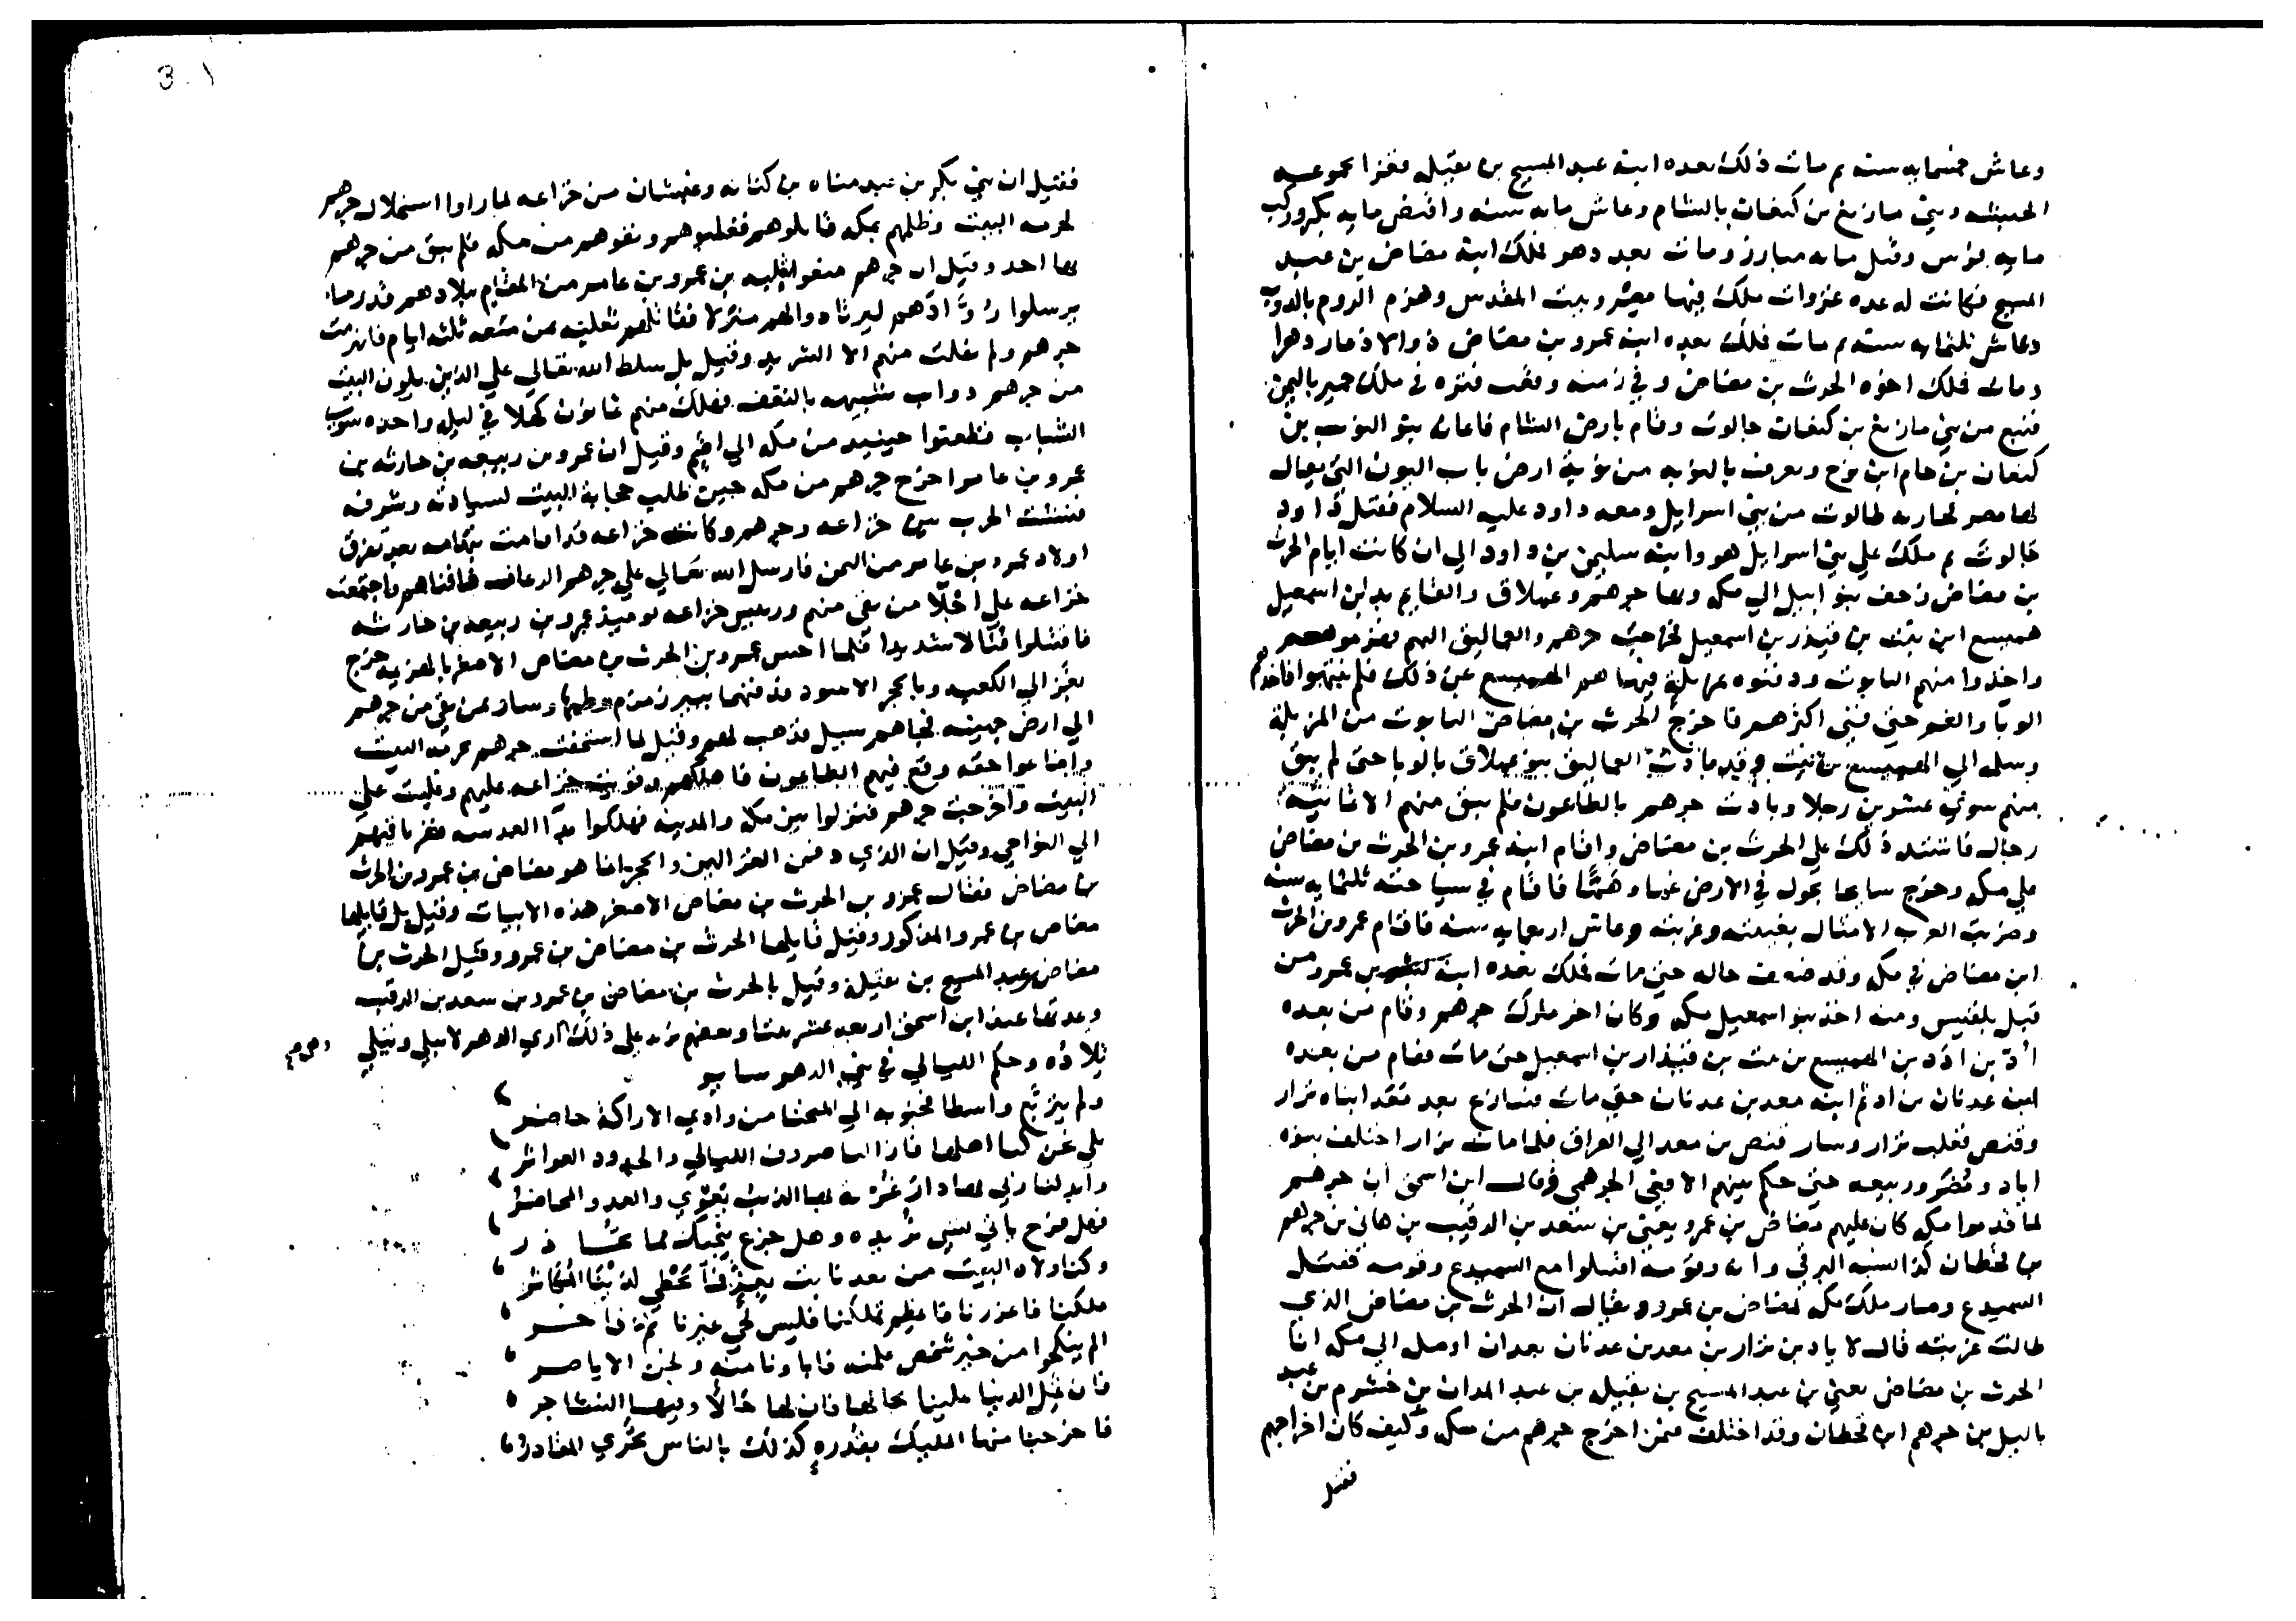 وعاش خمسمايه سنه ثم مات ذلك بعده ابنه عبد المسيح بن نفيله فغزا بجموعه
الحبشه وبني مازيغ بن كنعان بالشام وعاش مايه سنه وافتض مايه بكر وركب
مايه فرس وقتل مايه مبارز ومات بعد دهر فملك ابنه مضاض بن عبد
المسيح فكانت له عده غزوات ملك فيها مصر وبيت المقدس وهزم الروم بالدوب
وعاش ثلثمايه سنه ثم مات فملك بعده ابنه عمرو بن مضاض ذو الاذعار دهرا
ومات فملك اخوه الحرث بن مضاض وفي زمنه وقعت فتره في ملك حمير باليمن
فنبع من بني مازيغ بن كنعان جالوت وقام بارض الشام فاعان بنو النوب بن
كنعان بن حام ابن نوح ويعرف بالنوبه من نوبة ارض باب اليون التي يقال
لها مصر لمحاربه طالوت من بني اسرايل ومعه داود عليه السلام فقتل داود
جالوت ثم ملك علي بني اسرايل هو وابنه سليمن بن داود الي ان كانت ايام الحرث
بن مضاض زحف بنو اسرايل الي مكه وبها جرهم وعملاق والقايم بدين اسمعيل
هميسع ابن نبت بن قيذر بن اسمعيل فخرجت جرهم والعماليق اليهم فهزموهم
واخذوا منهم التابوت ودفنوه بمزبلة فنهاهم الهميسع عن ذلك فلم ينتهوا فاخذهم
الوبا والغم حتي فني اكثرهم فاخرج الحرث بن مضاض التابوت من المزبلة
وسلمه الي الهميسع بن نبت وقيد بادت العماليق بنو عملاق بالوبا حتي لم يبق
منهم سوي عشرين رجلا وبادت جرهم بالطاعون فلم يبق منهم الا ثمانيه
رجال فاشتد ذلك علي الحرث بن مضاض واقام ابنه عمرو بن الحرث بن مضاض
علي مكه وخرج سايحا يجول في الارض غما وهما فاقام في سياحته ثلثمايه سنه
وضربت العرب الامثال بغيبته وغربته وعاش اربعمايه سنه فاقام عمرو بن الحرث
ابن مضاض في مكه وقد ضعف حاله حتي مات فملك بعده ابنه بشر بن عمرو من
قبل بلقيس ومنه اخذ بنو اسمعيل مكه وكان اخر ملوك جرهم وقام من بعده
أد بن ادد بن الهميسع بن نبت بن قيذار بن اسمعيل حتي مات فقام من بعده
ابنه عدنان بن اد ثم ابنه معد بن عدنان حتي مات فتنازع بعد فقد ابناه نزار
وقنص فغلب نزار وسار قنص بن معد الي العراق فلما مات نزار اختلف بنوه
اياد ومضر وربيعه حتي حكم بينهم الافعي الجرهمي وقال ابن اسحق ان جرهم
لما قدموا مكه كان عليهم مضاض بن عمرو يعني بن سعد بن الرقيب بن هاني بن جرهم
بن قحطان كذا نسبه البرقي وانه وقومه اقتتلوا مع السميدع وقومه فقتل
السميدع وصار ملك مكه لمضاض بن عمرو ويقال ان الحرث بن مضاض الذي
طالت غربته قال لاياد بن نزار بن معد بن عدنان بعد ان اوصل الي مكه انا
الحرث بن مضاض يعني بن عبد المسيح بن نفيله بن عبد المدان بن خشرم بن عبد
ياليل بن جرهم ابن قحطان وقد اختلف فيمن اخرج جرهم من مكه وكيف كان اخراجهم
فقيل
فقيل ان بني بكر بن عبد مناه بن كنانه وغبشان من خزاعه لما راوا استحلال جرهم
لحرمه البيت وظلمهم بمكه قاتلوهم فغلبوهم ونفوهم من مكه فلم يبق من جرهم
بها احد وقيل ان جرهم منعوا ثعلبه بن عمرو بن عامر من المقام ببلادهم قدر ما
يرسلوا روادهم ليرتادوا لهم منزلا فقاتلهم ثعلبه بمن معه ثلثه ايام فانهزمت
جرهم ولم يفلت منهم الا الشريد وقيل بل سلط الله تعالي علي الذين يلون البيت
من جرهم دواب شبيهه بالنغف فهلك منهم ثمانون كهلا في ليله واحده سوي
الشباب فظعنوا حينيذ من مكه الي اضم وقيل ان عمرو بن ربيعه بن حارثه بن
عمرو بن عامر اخرج جرهم من مكه حين طلب حجابة البيت لسيادته وشرفه
فنشبت الحرب بين خزاعه وجرهم وكانت خزاعه قد اقامت بتهامه بعد تفرق
اولاد عمرو بن عامر من اليمن فارسل الله تعالي علي جرهم الرعاف فافناهم واجتمعت
خزاعه علي اجلا من بقي منهم وربيس خزاعه يوميذ عمرو بن ربيعه بن حارثه
فاقتتلوا قتالا شديدا فلما احس عمرو بن الحرث بن مضاض الاصغر بالهزيمه خرج
بغزالي الكعبه وبالحجر الاسود فدفنهما ببير زمزم وطمها وسار بمن بقي من جرهم
الي ارض جهينه فجاهم سيل فذهب لهم وقيل لما استخفت جرهم بحرمه البيت
واضاعوا حقه وقع فيهم الطاعون فاهلكهم وقويت خزاعه عليهم وغلبت علي
البيت واخرجت جرهم فنزلوا بين مكه والمدينه فهلكوا بدا العدسه فتفر باقيهم
الي النواحي وقيل ان الذي دفن الغزالين والحجر انما هو مضاض بن عمرو بن الحرث
بن مضاض فقال عمرو بن الحرث بن مضاض الاصغر هذه الابيات وقيل بل قايلها
مضاض بن عمرو المذكور وقيل قايلها الحرث بن مضاض بن عمرو وقيل الحرث بن
مضاض بن عبد المسيح بن نفيلة وقيل بالحرث بن مضاض بن عمرو بن سعد بن الرقيب
وعدتها عند ابن اسحق اربعه عشر بيتا وبعضهم يزيد علي ذلك اري الدهر لا يبلي ويبلي
بلاده وحكم الليالي في بني الدهر ساير
ولم يتربع واسطا فجنوبه الي المنحنا من وادي الاراكة حاضر
بلي نحن كنا اهلها فازالنا صروف الليالي والجدود العواثر
وابدلنا ربي بها دار غربه بها الذيب يعوي والعدو المحاضر
فهل فرح باتي بشي تريده وهل جزع ينجيك مما تحاذر
وكنا ولاه البيت من بعد نابت بعز فما يحظي لدينا المكاثر
ملكنا فاعززنا فاعظم بملكنا فليس لحي غيرنا ثم فاخر
الم ينكحوا من خير شخص علمته فابناونا منه ونحن الاياصر
فان تمل الدنيا علينا بحالها فان لها حالا وفيها التشاجر
فاخرجنا منها المليك بقدره كذلك بالناس تجري المقادر